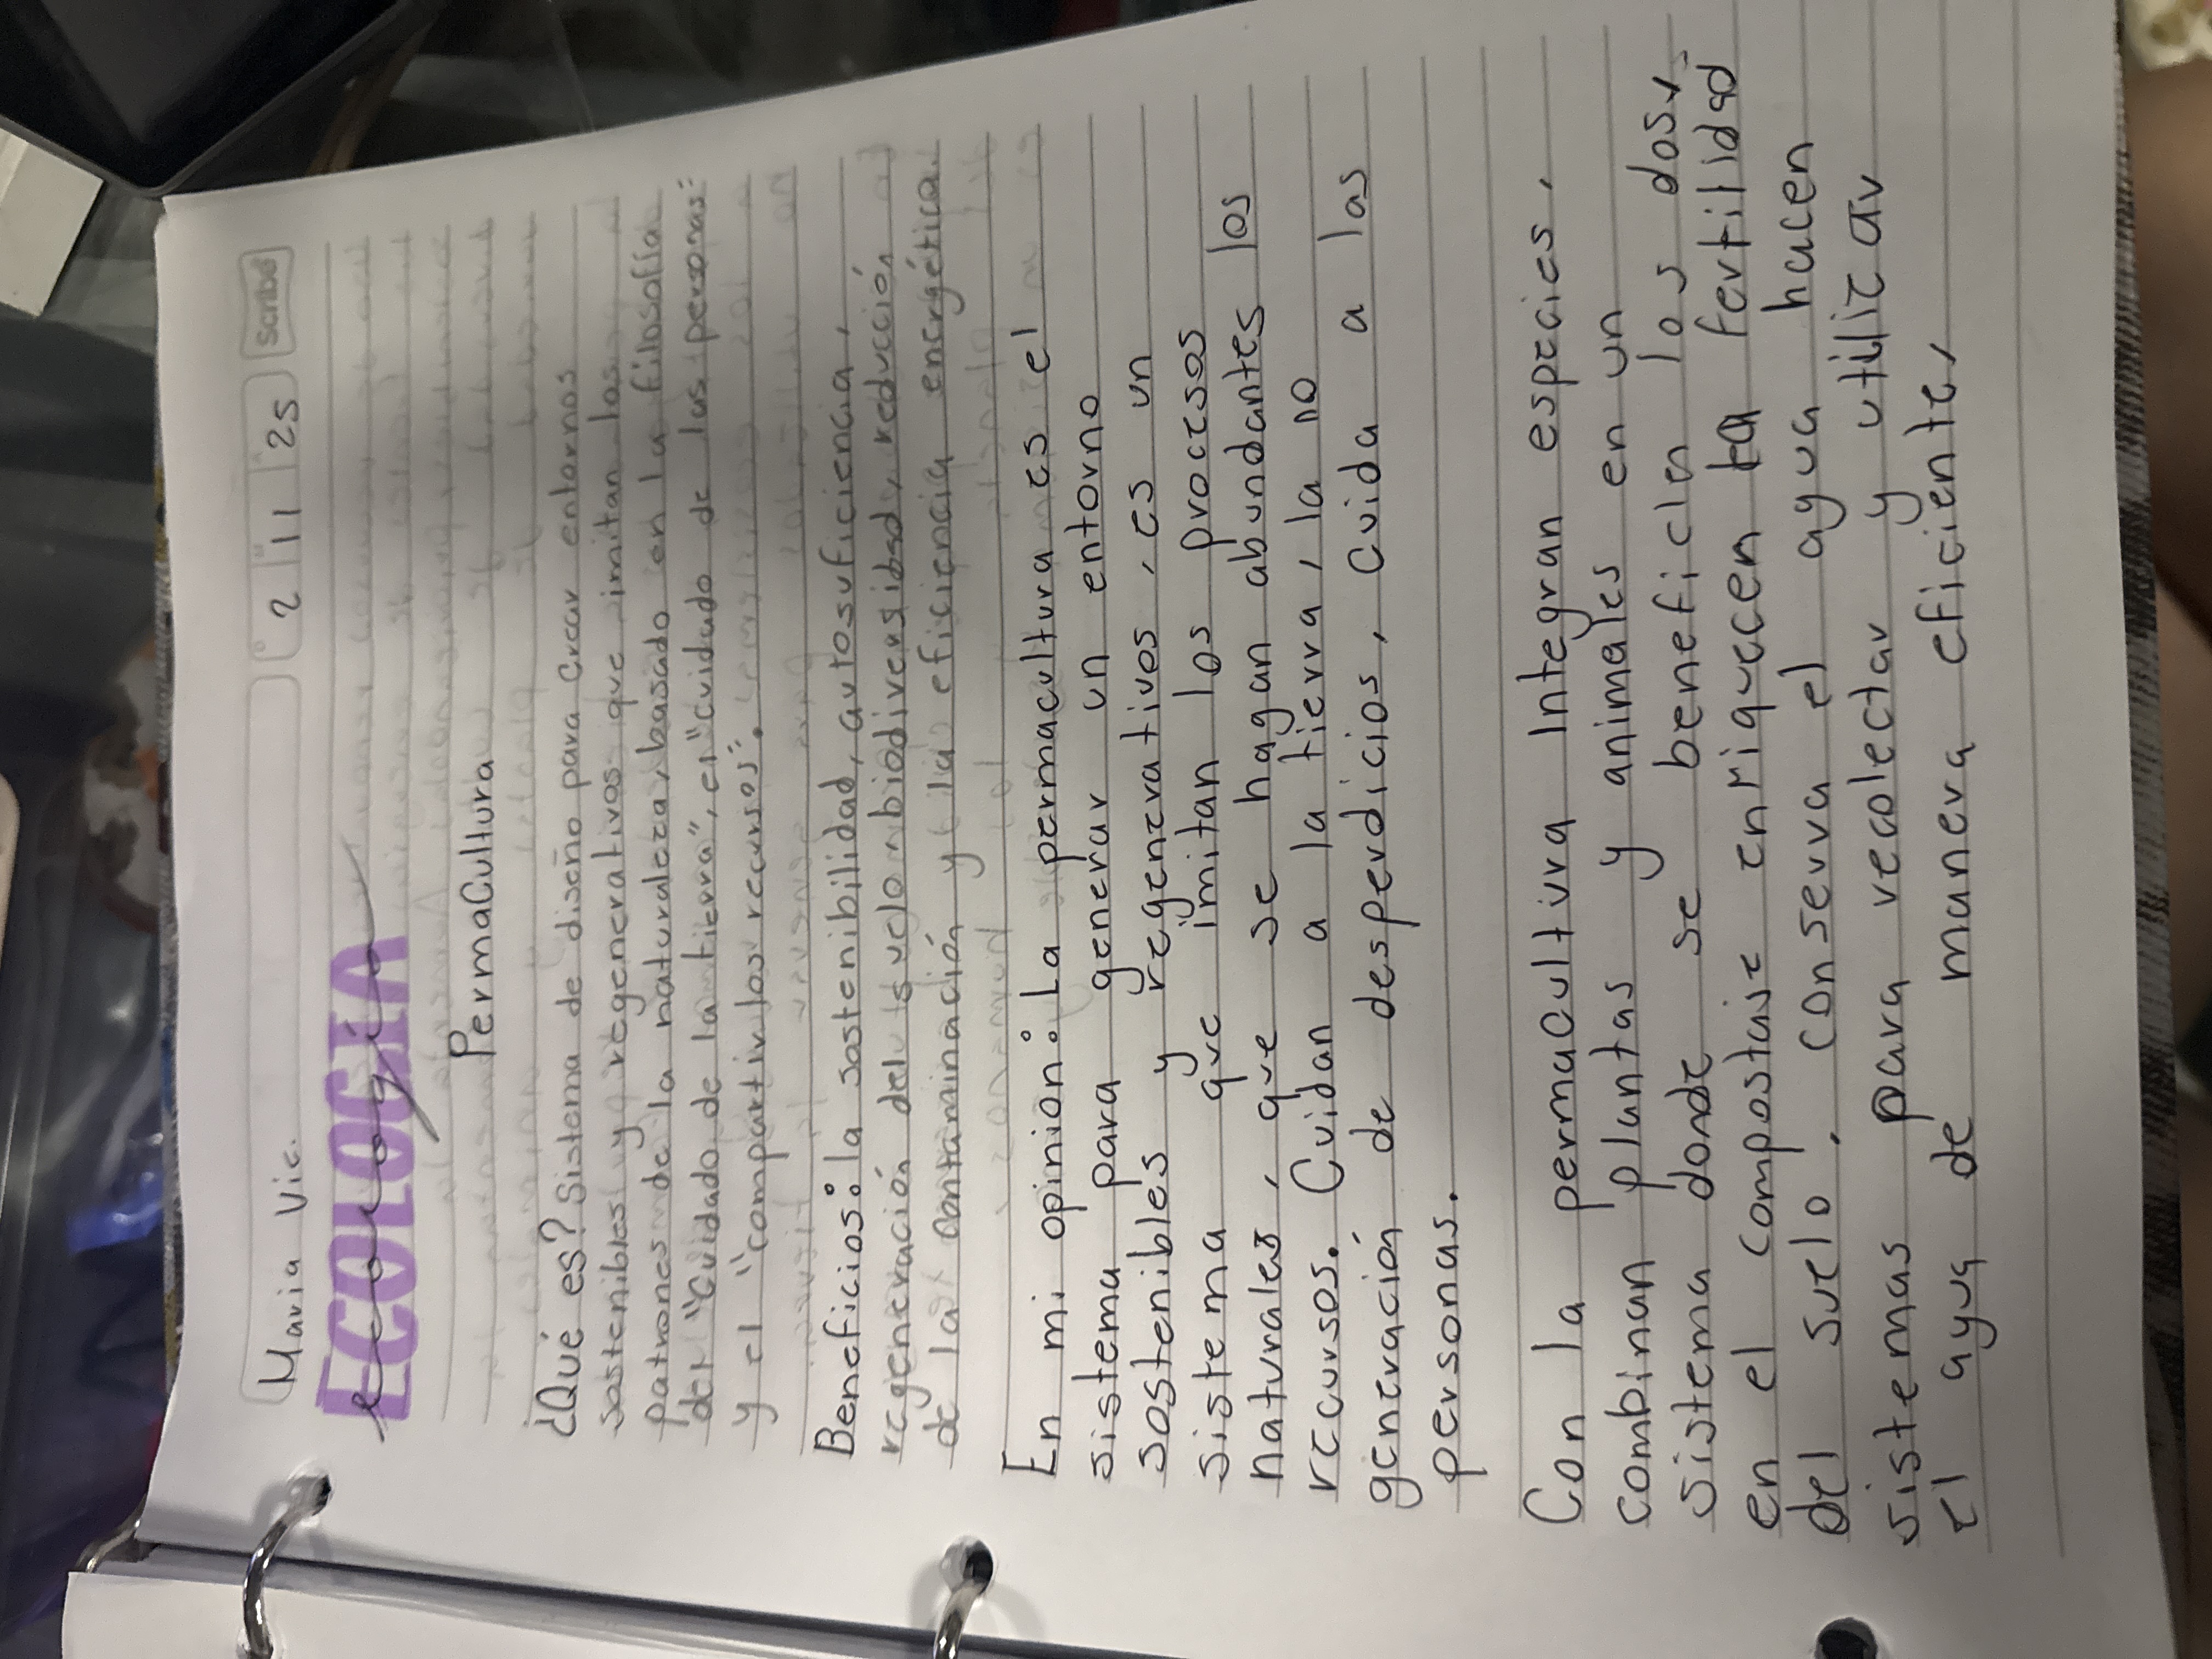 Maria Vic.
2 11 25
Scribe
ECOLOGIA
ecología
PermaCultura
¿Qué es? Sistema de diseño para crear entornos
sostenibles y regenerativos que imitan los
patrones de la naturaleza, basado en la filosofía
del "Cuidado de la tierra", el "cuidado de las personas"
y el "compartir los recursos".
Beneficios: la sostenibilidad, autosuficiencia,
regeneración del suelo biodiversidad, reducción
de la contaminación y la eficiencia energética.
En mi opinion: La permacultura es el
sistema para generar un entorno
sostenibles y regenerativos, es un
sistema que imitan los procesos
naturales, que se hagan abundantes los
recursos. Cuidan a la tierra, la no
generación de desperdicios, cuida a las
personas.
Con la permacultura integran especies,
combinan plantas y animales en un
sistema donde se beneficien los dos,
en el compostaje enriquecen la fertilidad
del suelo, conserva el agua hacen
sistemas para recolectar y utilizar
el agua de manera eficiente,